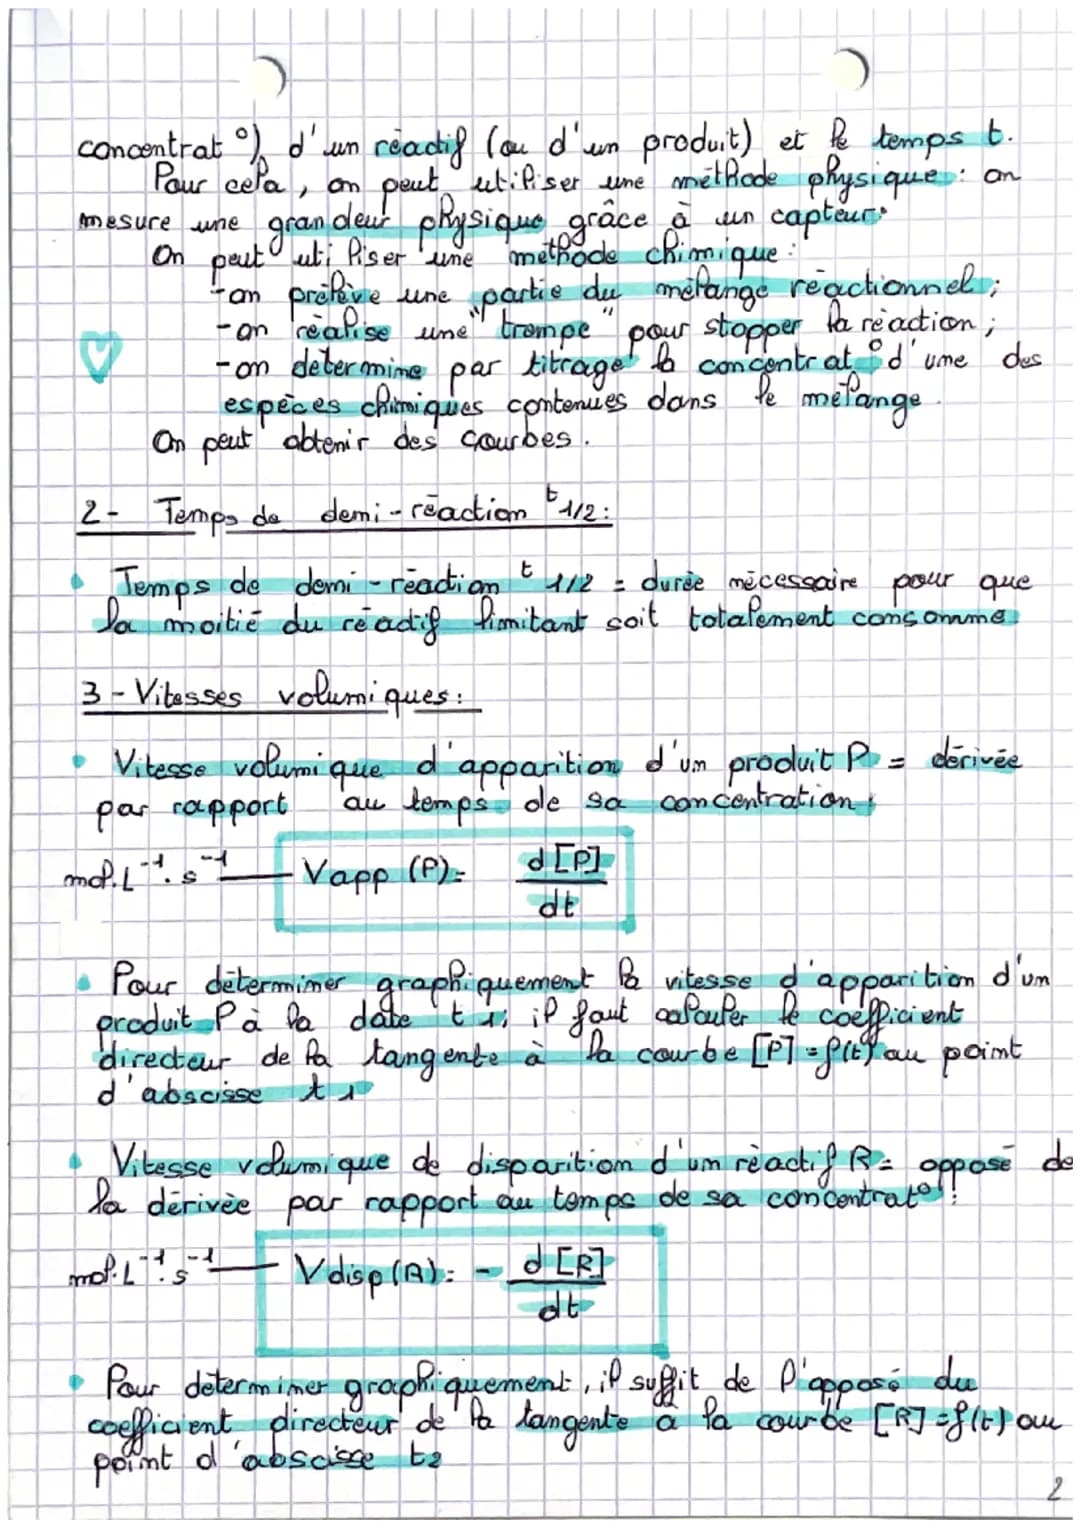 concentrat°) d'un réactif (ou d'un produit) et le temps t.
Pour cela, on peut utiliser une méthode physique : on
mesure une grandeur physique grâce à un capteur.
On peut utiliser une méthode chimique :
- on prélève une partie du mélange réactionnel ;
- on réalise une "trempe" pour stopper la réaction ;
- on détermine par titrage la concentrat° d'une des
espèces chimiques contenues dans le mélange.
On peut obtenir des courbes.
2- Temps de demi-réaction t 1/2 :
Temps de demi-réaction t 1/2 = durée nécessaire pour que
la moitié du réactif limitant soit totalement consommé
3- Vitesses volumiques :
Vitesse volumique d'apparition d'un produit P = dérivée
par rapport au temps de sa concentration :
mol.L⁻¹.s⁻¹ — Vapp (P) = d[P]
dt
Pour déterminer graphiquement la vitesse d'apparition d'un
produit P à la date t1 ; il faut calculer le coefficient
directeur de la tangente à la courbe [P] = f(t) au point
d'abscisse t1
Vitesse volumique de disparition d'un réactif R = opposé de
la dérivée par rapport au temps de sa concentrat° :
mol.L⁻¹.s⁻¹ — Vdisp(R) = - d[R]
dt
Pour déterminer graphiquement, il suffit de l'opposé du
coefficient directeur de la tangente à la courbe [R] = f(t) au
point d'abscisse t2
2